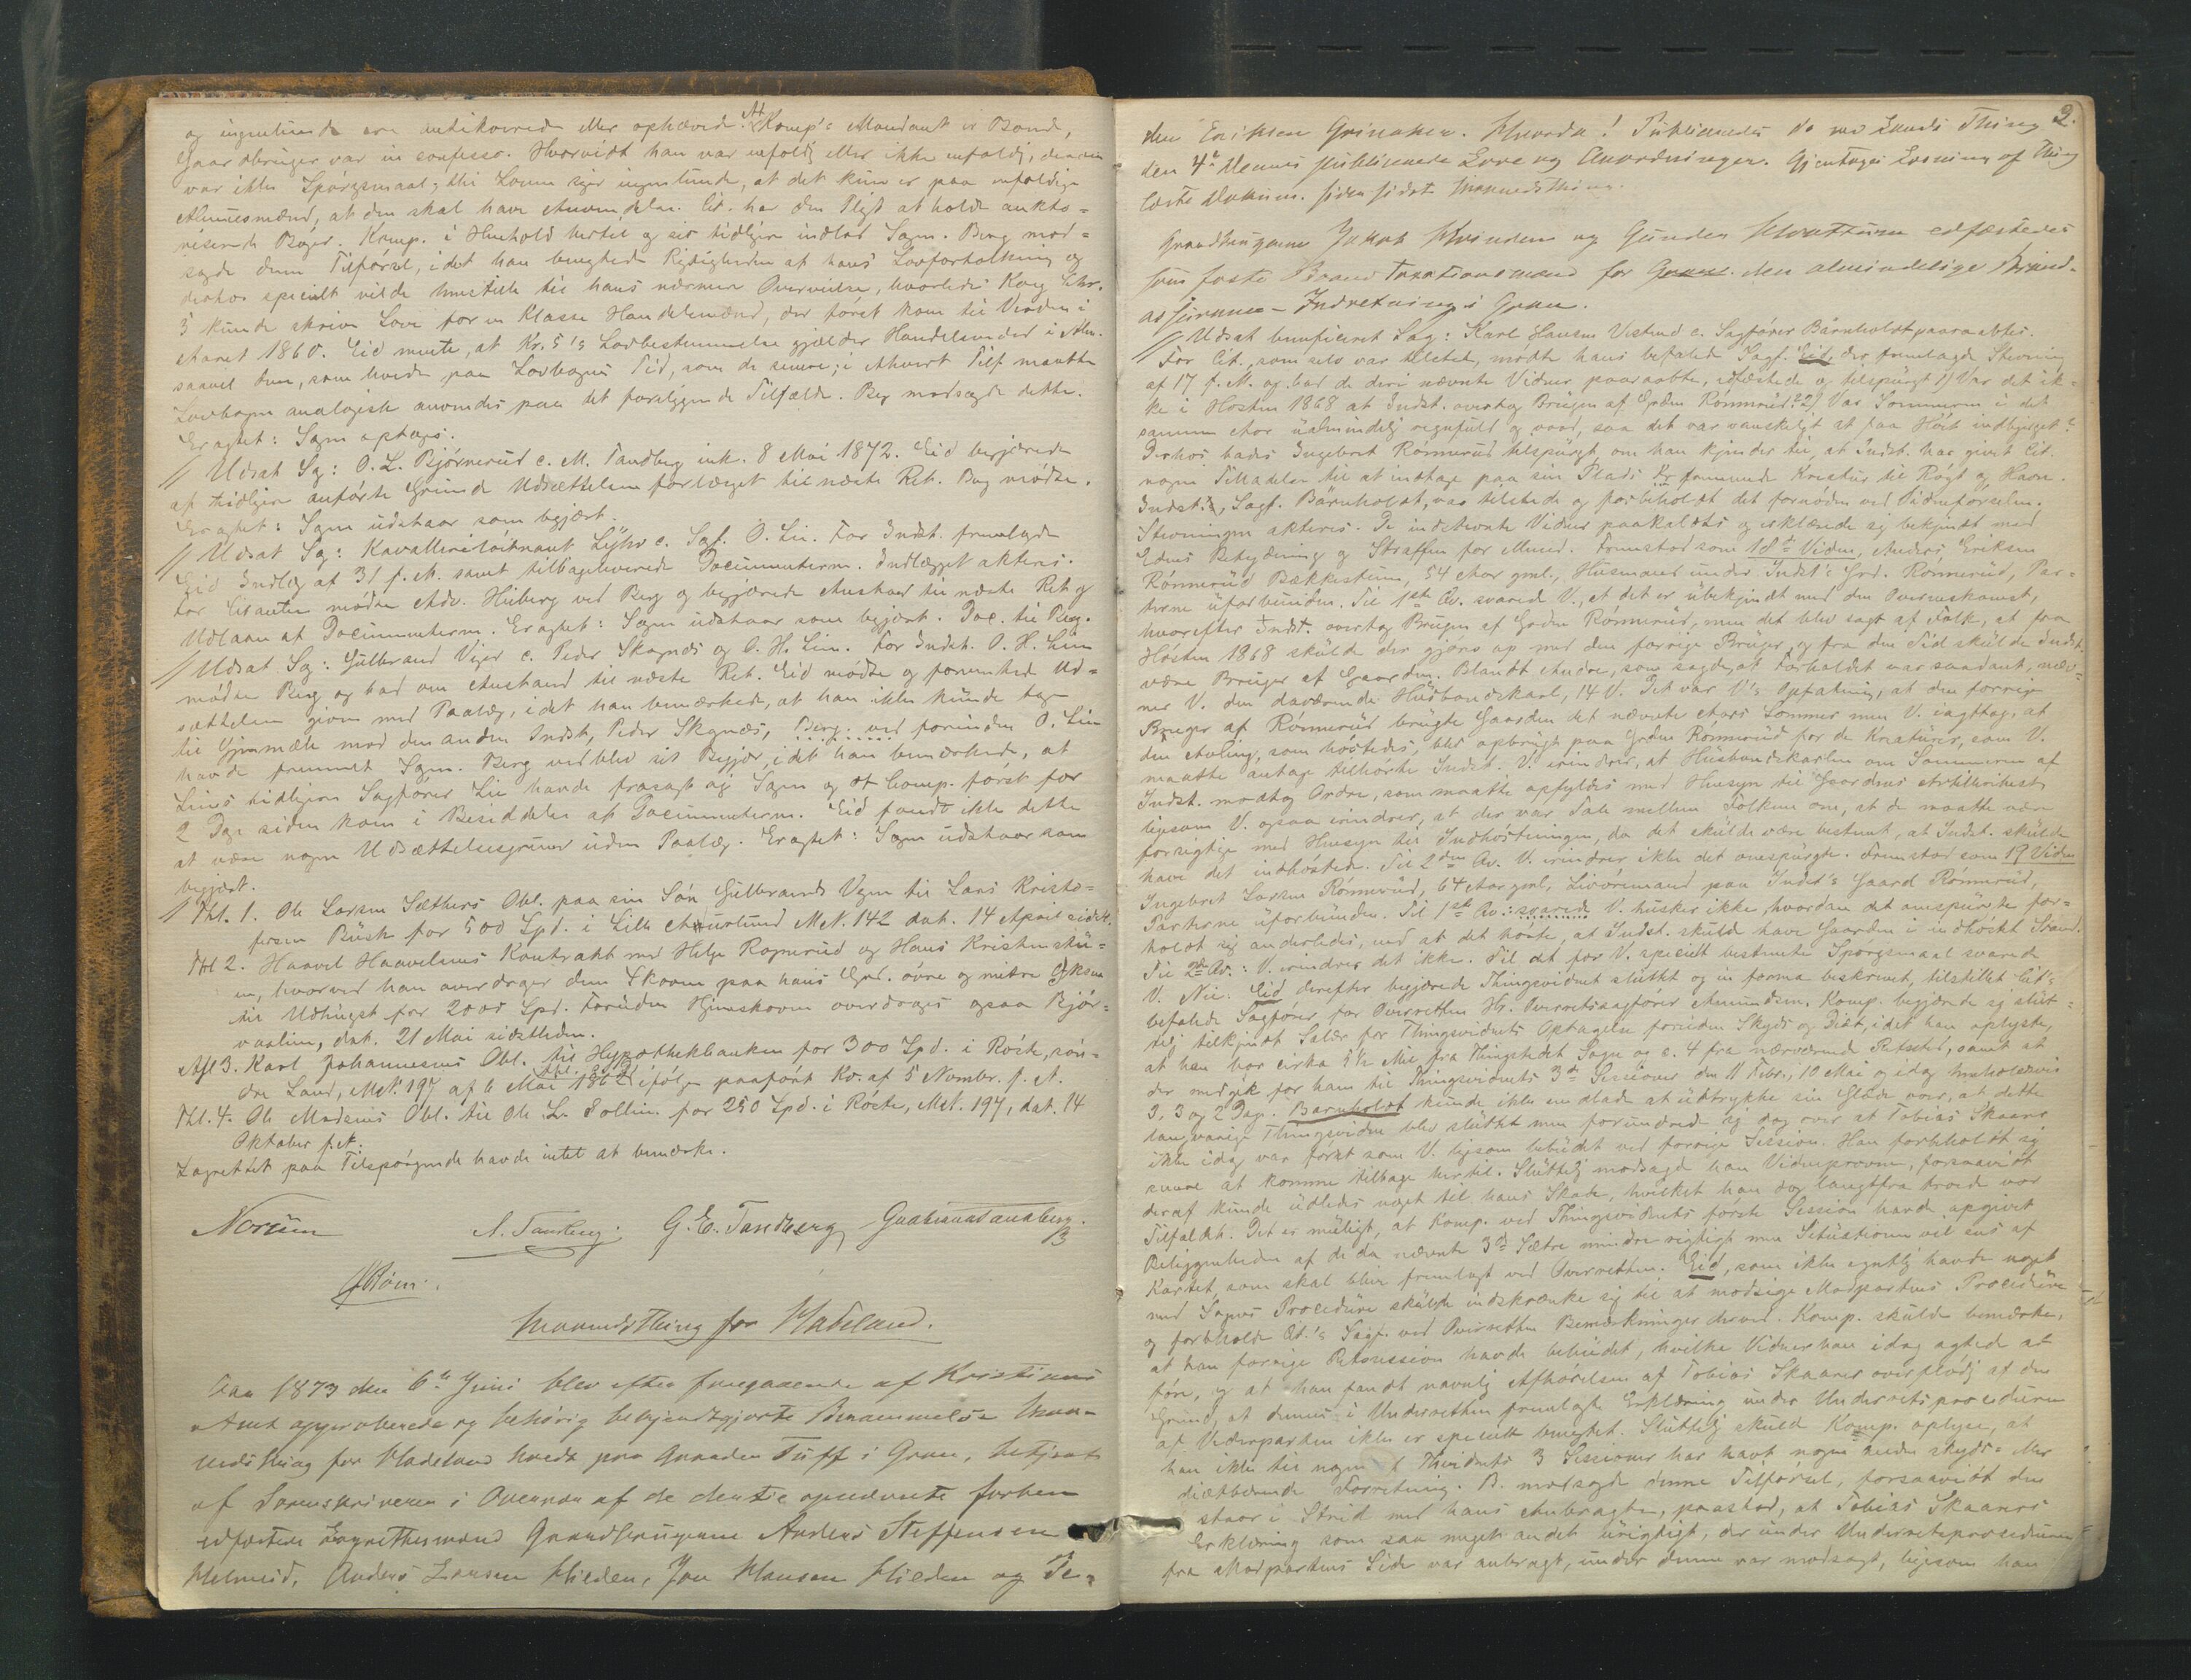 og ingenlunde era antikverede eller ophævede. At Komp's Mandant er Bonde,
Gaardbruger var in confesso. Hvorvidt han var enfoldig eller ikke enfoldig, derom
var ikke Spørgsmaal; thi Loven siger ingenlunde, at det kun er paa enfoldige
Almuesmænd, at den skal have Anvendelse. Cit. har den Pligt at holde aukto-
riserede Bøger. Komp. i Henhold hertil og sit tidligere indlod Sagen. Berg mod-
sagde denne Tilførsel, idet han benegtede Rigtigheden af hans Lovfortolkning og
derhos specielt vilde henstille til hans nærmere Overveielse, hvorledes Kong Chr.
5 kunde skrive Love for en Klasse Handelsmænd, der først kom til Verden i
Aaret 1860. Eid mente, at Kr. 5's Lovbestemmelse gjælder Handelsmænd i Alm.
saavel dem, som levede paa Lovbogens Tid, som de senere; i ethvert Tilf. maatte
Lovbogen analogisk anvendes paa det foreliggende Tilfælde. Berg modsagde dette.
Eragtet: Sagen optages.
// Udsat Sag: O. L. Bjørnerud c. M. Tandberg ink. 8 Mai 1872. Eid begjærede
af tidligere anførte Grunde Udsættelsen forlænget til næste Ret. Berg mødte.
Eragtet: Sagen udstaar som begjært.
// Udsat Sag: Kavalleriløitnant Lyhr c. Sagf. O. Lie. For Indst. fremlagde
Eid Indlæg af 31 f. M. samt tilbageleverede Documenterne. Indlægget akteres.
For Citanten mødte Adv. Hiberg ved Berg og begjærede Anstand til næste Ret og
Udlaan af Documenterne. Eragtet: Sagen udstaar som begjært. Doc. til Berg.
// Udsat Sag: Gulbrand Viger c. Peder Skagnæs og O. H. Lie. For Indst. O. H. Lie
mødte Berg og bad om Anstand til næste Ret. Eid mødte og formente Ud-
sættelsen given med Paalæg, idet han bemærkede, at han ikke kunde tage
til Gjenmæle mod den anden Indst, Peder Skagnæs, Berg ved forinden O. Lie
havde fremmet Sagen. Berg vedblev sit Begjær, idet han bemærkede, at
Lies tidligere Sagfører Lie havde frasagt sig Sagen og at Comp. først for
2 Dage siden kom i Besiddelse af Documenterne. Eid fandt ikke dette
at være nogen Udsættelsesgrund uden Paalæg. Eragtet: Sagen udstaar som
begjært.
// Thl. 1. Ole Larsen Sæthers Obl. paa sin Søn Gulbrands Vegne til Lars Kristo-
fersen Busk for 500 Spd. i Lille Aurlund Mt. 142 dat. 14 April sidstl.
Thl 2. Haavel Haavelsens Kontrakt med Helge Rognerud og Hans Kristensku-
en, hvorved han overdrager dem Skoven paa hans Grd. øvre og mitre
til Udhugst for 2000 Spd. Foruden Hjemskoven overdrages ogsaa Bjør-
vaalien, dat. 21 Mai sidstleden.
Afl 3. Karl Johannesens Obl. til Hypothekbanken for 300 Spd. i Roste, søn-
dre Land, Mt. 197 af 6 Mai 1862 ifølge paaført Kv. af 5 Novmbr. f. A.
Thl. 4. Ole Madsens Obl. til Ole L. Sollien for 250 Spd. i Røste, Mt. 197, dat. 14
Oktober f. A.
Lagrettet paa Tilspørgende havde intet at bemærke.
Norum A. Tandberg. G. E. Tandberg Gulbrand Tandberg.
Maanedsthing for Hadeland.
Aar 1873 den 6te Juni blev efter foregaaende af Kristians
Amt approberede og behørig bekjendtgjorte Berammelse Maa-
nedsthing for Hadeland holdt paa Gaarden Tuff i Gran, betjent
af Sorenskriveren i Overvær af de dertil opnævnte forhen
edfæstede Lagrettesmænd Gaardbrugerne Anders Steffensen
Helmeid, Anders Larsen Hilden, Jon Hansen Hilden og Pe-
2.
der Eriksen Grinaker. Hvorda: Publiceredes de ved Lands Thing
den 4de dennes publicerede Love og Anordninger. Gjentages Læsning af Thing
læste Dokum. siden sidste Maanedsthing.
Gaardbrugerne Jakob Kvinden og Gunder Hvattum edfæstedes
som faste Brandtaxationsmænd for Gran den almindelige Brand-
assurance-Indretning i Gran.
// Udsat beneficeret Sag: Karl Hansen Vestrud c. Sagfører Barnholdt paaraabtes.
For Cit., som selv var tilstede, mødte hans befalede Sagf. Eid, der fremlagde Stevning
af 17 f. M. og bad de deri nævnte Vidner paaraabte, edfæstede og tilspurgt 1) Var det ik-
ke i Høsten 1868 at Indst. overtog Brugen af Grden Rønnerud? 2) Var Sommeren i det
samme Aar ualmindelig regnfuld og vaad, saa det var vanskeligt at faa Høet indbjerget?
Derhos bades Ingebret Rønnerud tilspurgt, om han kjender til, at Indst. har givet Cit.
nogen Tilladelse til at indtage paa sin Plads fremmede Kreatur til Røgt og Havn.
Indst., Sagf. Barnholdt, var tilstede og forbeholdt det fornødne ved Vidneførselen.
Stevningen akteres. De indstevnte Vidner paakaldtes og erklærede sig bekjendt med
Edens Betydning og Straffen for Mened. Fremstod som 18de Vidne, Anders Eriksen
Rønnerud Bækkestuen, 54 Aar gml., Husmand under Indst's Grd. Rønnerud, Par-
terne uforbunden. Til 1ste Qv. svarede V., at det er ubekjendt med den Overenskomst,
hvorefter Indst. overtog Brugen af Grden Rønnerud, men det blev sagt af Folk, at fra
Høsten 1868 skulde der gjøres op med den forrige Bruger, og fra den Tid skulde Indst.
være Bruger af Gaarden. Blandt Andre, som sagde, at Forholdet var saadant, næv-
ner V. den daværende Husbondskarl, 14 V. Det var V's Opfatning, at den forrige
Bruger af Rønnerud brugte Gaarden det nævnte Aars Sommer men V. iagttog, at
den Avling, som høstedes, blev opbrugt paa Grden Rønnerud for de Kreaturer, som V.
maatte antage tilhørte Indst. V. erindrer, at Husbondskarlen om Sommeren af
Indst. modtog Ordre, som maatte opfyldes med Hensyn til Gaardens
ligesom V. ogsaa erindrer, at der var Tale mellem Folkene om, at de maatte være
forsigtige med Hensyn til Indhøstningen, da det skulde være bestemt, at Indst. skulde
have det indhøstede. Til 2den Qv. V. erindrer ikke det omspurgte. Fremstod som 19 Vidne
Ingebret Larsen Rønnerud, 64 Aar gml, Livøremand paa Indst's Gaard Rønnerud,
Parterne uforbunden. Til 1ste Qv.: svarede V. husker ikke, hvordan det omspurgte for-
holdt sig anderledes, end at det hørte, at Indst. skulde have Gaarden i indhøstet Stand.
Til 2det Qv.: V. erindrer det ikke. Til det for V. specielt bestemte Spørgsmaal svarede
V. Nei. Eid derefter begjærede Thingsvidnet sluttet og in forma beskrevet, tilstillet Cit's
befalede Sagfører for Overretten Hr. Overretssagfører Amundsen. Komp. begjærede sig slut-
telig tilkjendt Salær for Thingsvidnets Optagelse foruden Skyds og Diæt, idet han oplyste,
at han bor cirka 5½ Mil fra Thingstedet Sogn og c. 4 fra nærværende Retssted, samt at
der medgik for ham til Thingsvidnets 3de Sessioner den 11 Febr., 10 Mai og idag henholdsvis
3, 3 og 2 Dage. Barnholdt kunde ikke undlade at udtrykke sin Glæde over, at dette
langvarige Thingsvidne blev sluttet men forundrede sig dog over at Tobias Skaars
ikke idag var ført som V. ligesom bebudet ved forrige Session. Han forbeholdt sig
senere at komme tilbage hertil. Sluttelig modsagde han Vidneprovene, forsaavidt
deraf kunde udledes noget til hans Skade, hvilket han dog langtfra troede var
Tilfældet. Det er muligt, at Komp. ved Thingsvidnets første Session havde opgivet
Beliggenheden af de da nævnte 3de Sætre mindre rigtigt men Situationen vil sees af
Kartet, som skal blive fremlagt ved Overretten. Eid, som ikke egntlig havde noget
med Sagens Procedure skulde indskrænke sig til at modsige Modpartens Procedure
og forbeholde Cit.'s Sagf. ved Overretten Bemærkninger derved. Komp. skulde bemærke,
at han forrige Retssession havde bebudet, hvilke Vidner han idag agtede at
føre, og at han fandt navnlig Afhørelsen af Tobias Skaarer overflødig af den
Grund, at dennes i Underretten fremlagte Erklæring under Underretsproceduren
af Vederparten ikke er specielt benegtet. Sluttelig skulde Komp. oplyse, at
han ikke til nogen af Thividnets 3 Sessioner har havt nogen anden skyds- eller
diætbærende Forretning. B. modsagde denne Tilførsel, forsaavidt den
staar i Strid med hans Anbragte, paastod, at Tobias Skaarers
Erklæring som saa meget andet urigtigt, der under Underretsproceduren
fra Modpartens Side var anbragt, under denne var modsagt, ligesom han